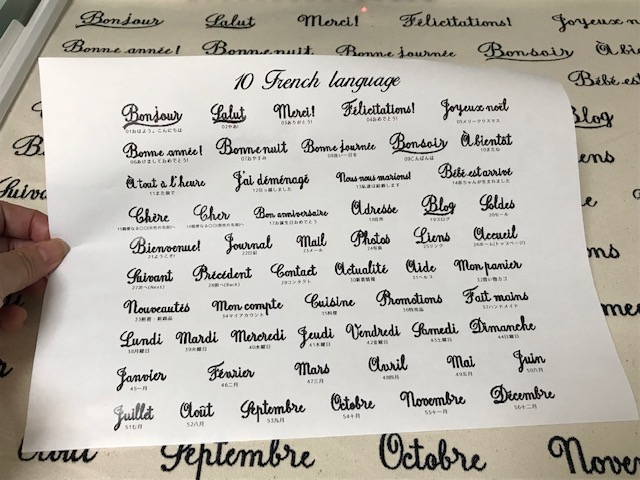 Bonjour Salut Merci! Félicitations! Joyeux n
Bonne année! Bonne nuit Bonne journée Bonsoir À bi
Bébé est
10 French language
Bonjour Salut Merci! Félicitations! Joyeux noël
01おはよう。こんにちは 02やあ! 03ありがとう! 04おめでとう! 05メリークリスマス
Bonne année! Bonne nuit Bonne journée Bonsoir À bientôt
06あけましておめでとう! 07おやすみ 08良い一日を 09こんばんは 10またね
À tout à l'heure J'ai déménagé Nous nous marions! Bébé est arrivé
11また後で 12引っ越しました 13私達は結婚します 14赤ちゃんが生まれました
Chère Cher Bon anniversaire Adresse Blog Soldes
17お誕生日おめでとう 18住所 19ブログ 20セール
Bienvenue! Journal Mail Photos Liens Accueil
21ようこそ! 22日記 23メール 24写真 25リンク 26ホーム(トップページ)
Suivant Précédent Contact Actualité Aide Mon panier
27次へ(Next) 28前へ(Back) 29コンタクト 30新着情報 31ヘルプ 32買い物カゴ
Nouveautés Mon compte Cuisine Promotions Fait mains
33新着・新商品 34マイアカウント 35料理 36特売品 37ハンドメイド
Lundi Mardi Mercredi Jeudi Vendredi Samedi Dimanche
38月曜日 39火曜日 40水曜日 41木曜日 42金曜日 43土曜日 44日曜日
Janvier Février Mars Avril Mai Juin
45一月 46二月 47三月 48四月 49五月 50六月
Juillet Août Septembre Octobre Novembre Décembre
51七月 52八月 53九月 54十月 55十一月 56十二月
Blog
ens
Suivan
Août Septembre Octobre Nove